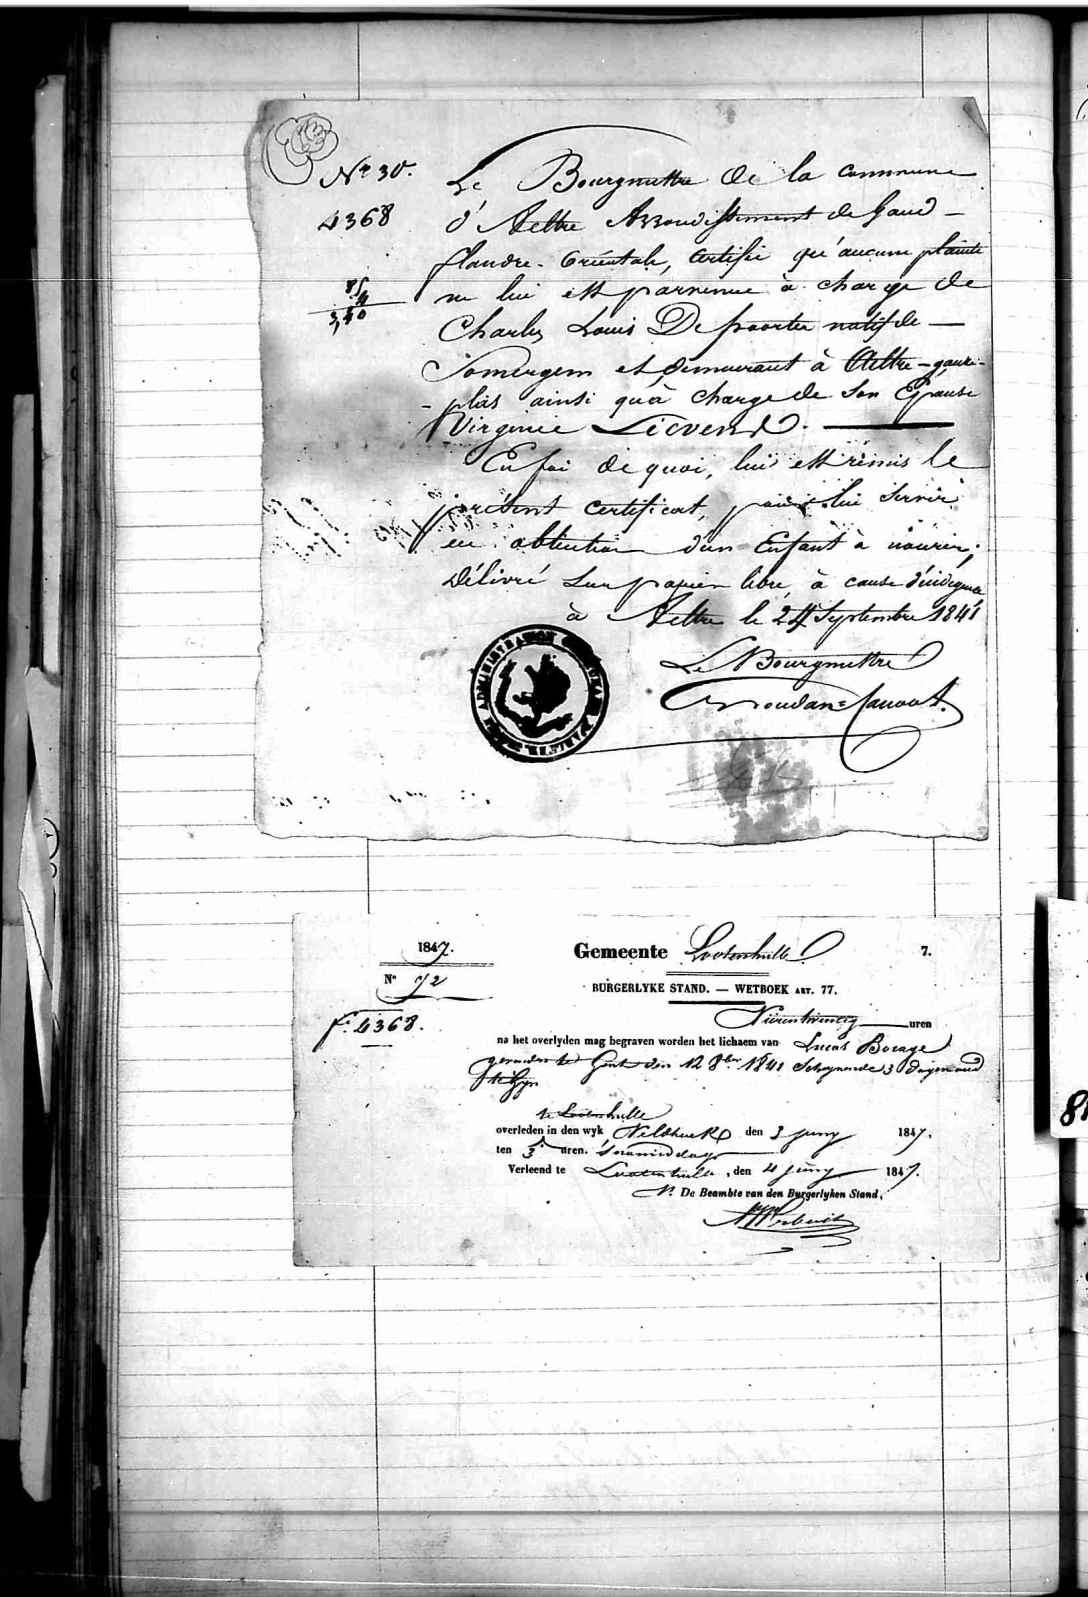 No 30.
4368
85
4
3,40
Le Bourgmettre de la commune
d'Aeltre Arrondissement de Gand —
flandre-Orientale, certifie qu'aucune plainte
ne lui est parvenue à charge de
Charles Louis De poorter natif de —
Somergem et demeurant à Aeltre-
ainsi qu'à charge de son Epouse
Virginie Lievens.
En foi de quoi, lui est remis le
présent certificat, pour lui servir
en obtention d'un Enfant à nourir;
Délivré sur papier libre, à cause d'indigence
à Aeltre le 24 Septembre 1841
Le Bourgmettre
ADMINISTRATION
1847.
No 72
f. 4368.
Gemeente Lootenhulle
7.
BURGERLYKE STAND. — WETBOEK ART. 77.
uren
na het overlyden mag begraven worden het lichaem van Lucas Bocage
gevonden te Gent den 12 8ber 1841 Schynende 3 dagen oud
te Zyn
te Lootenhulle
overleden in den wyk Veldhoek den 3 juny 1847.
ten 3 uren. 's namiddags
Verleend te Lootenhulle, den 4 juny 1847.
De Beambte van den Burgerlyken Stand,